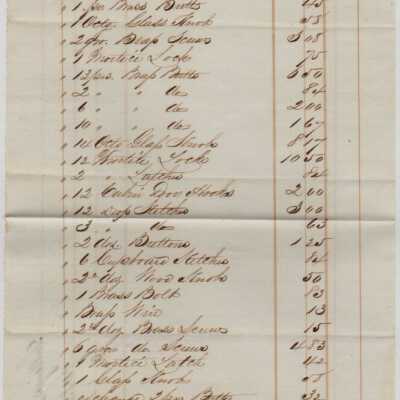 " 1 pr Brass Butts 45
" 1 Octo. Glass Knob 58
" 2 gro. Brass Screws 3 08
" 1 Mortice Lock 75
" 13 prs. Brass Butts 6 50
" 2 " " do 84
" 6 " " do 2 00
" 10 " " do 1 67
" 14 Octo Glass Knobs 8 17
" 12 Mortice Locks 10 50
" 2 " Latches 84
" 12 Cabin Door Hooks 2 00
" 12 Ketches 3 00
" 3 " do 63
" 2 doz Buttons 1 25
" 6 Cupboard Ketches 84
" 2 doz Wood Knobs 50
" 1 Brass Bolt 83
" Brass Wire 13
" 2 doz Brass Screws 15
" 6 gros do Screws 4 83
" 1 Mortice Latch 42
" 1 Glass Knob 58
Butts 32